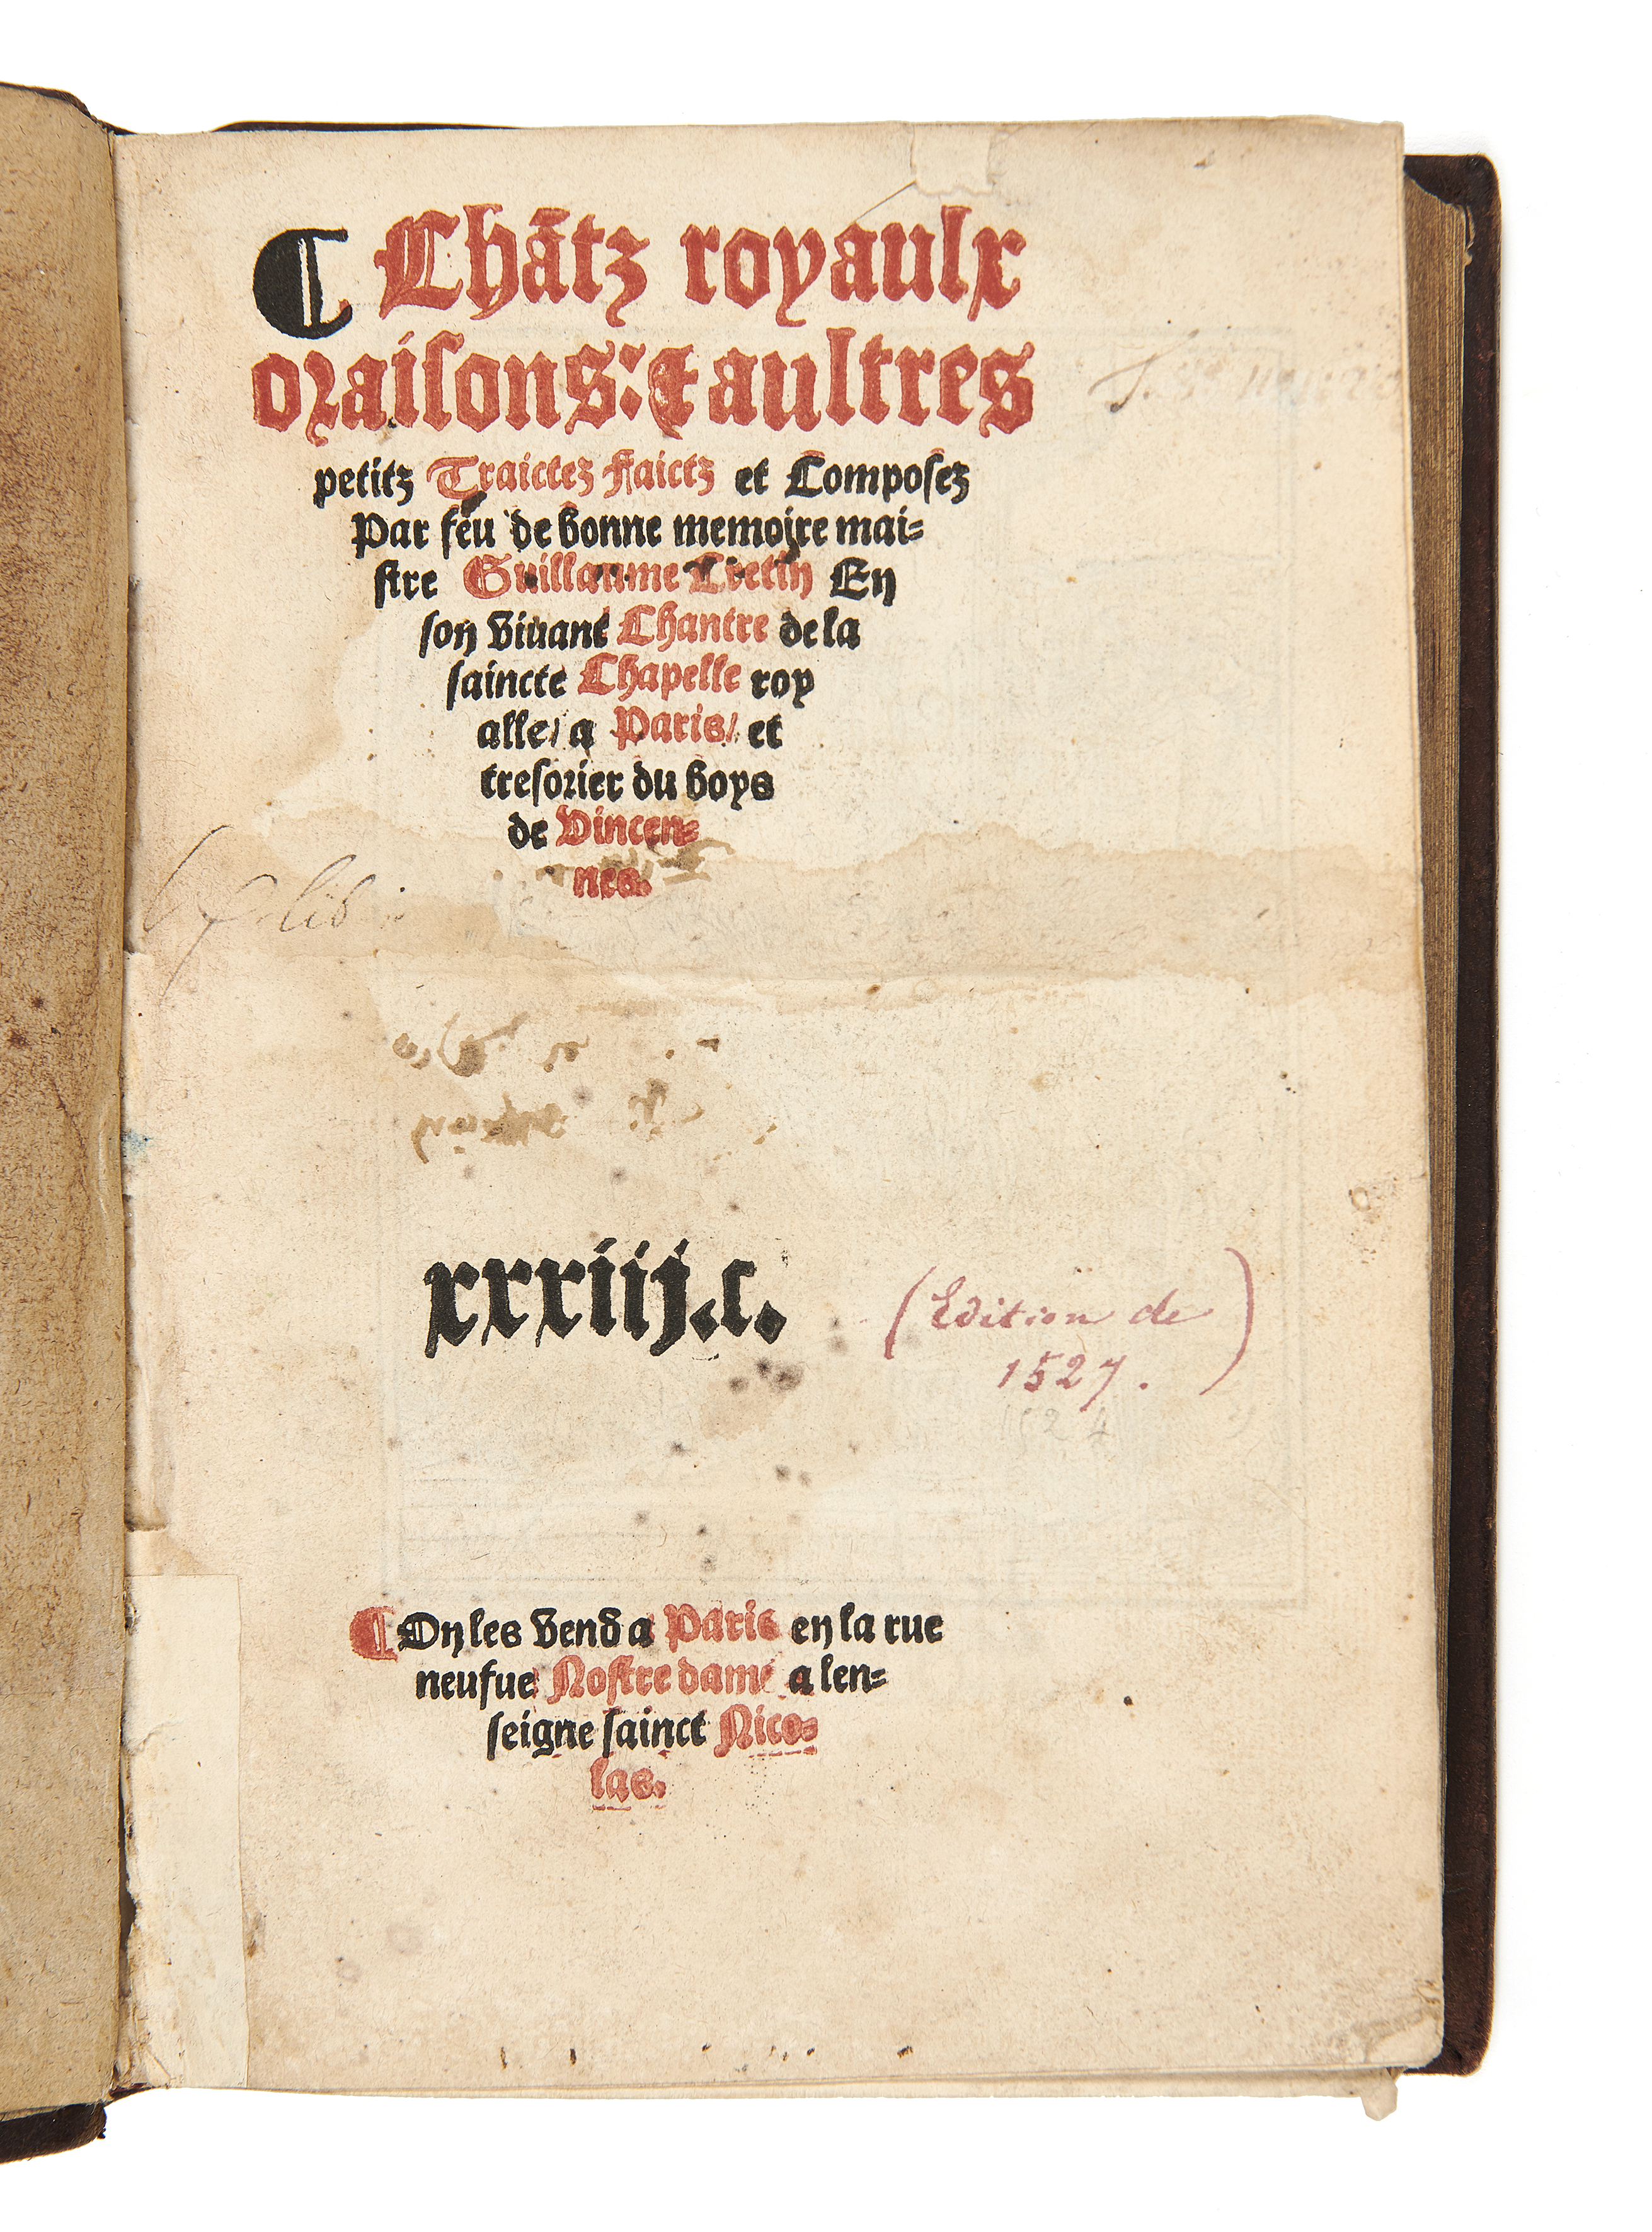 ¶ Chātz royaulx
oraisons: ⁊ aultres
petitz Traictez Faictz et Composez
Par feu de bonne memoire mai=
stre Guillaume Cretin En
son vivant Chantre de la
saincte Chapelle roy
alle/ a Paris/ et
tresorier du boys
de Vincen=
nes.
xxxiiij.c.
(Edition de
1527.)
1524
¶ On les vend a Paris en la rue
neufue Nostre dame a len=
seigne sainct Nico=
las.